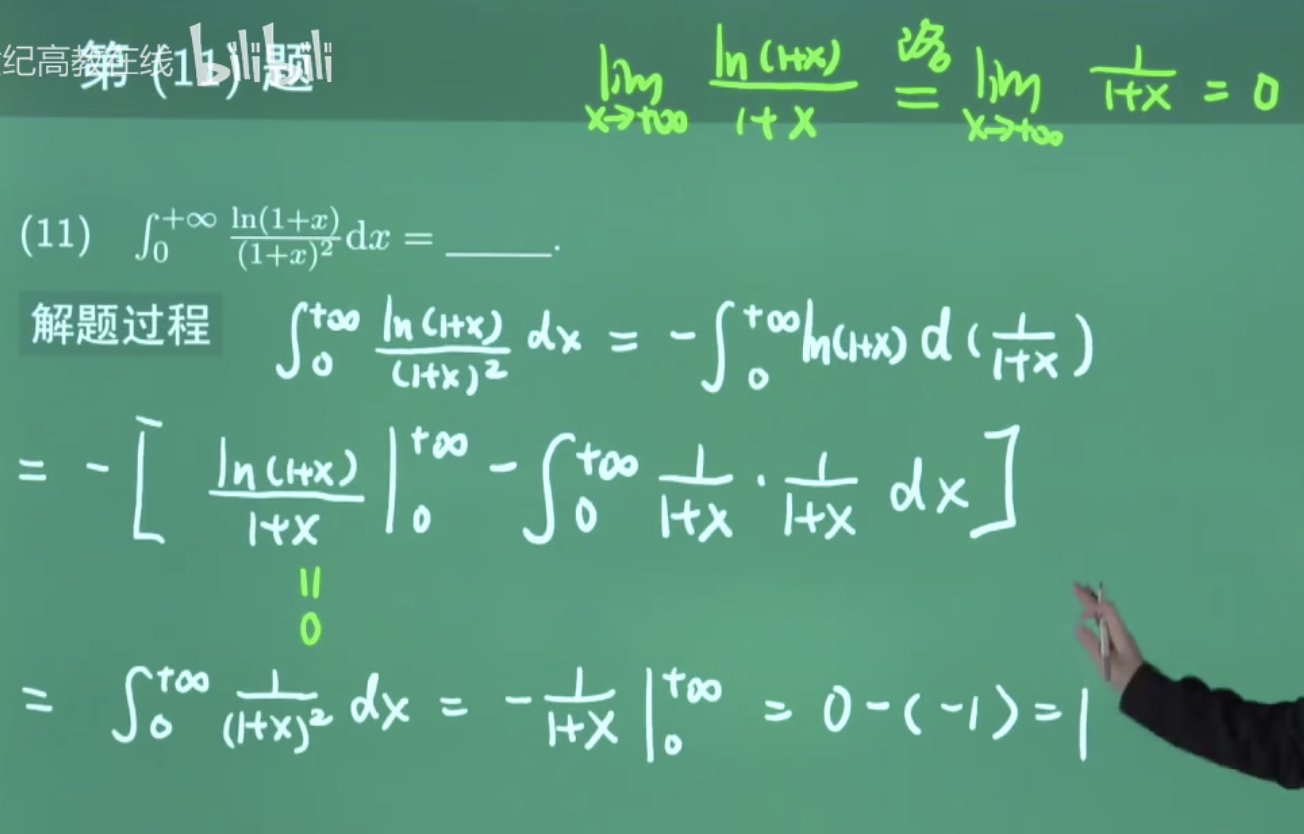 纪高教在线 bilibili
第 (11) 题
lim x→+∞ ln(1+x)/(1+x) 洛= lim x→+∞ 1/(1+x) = 0
(11) ∫₀^{+∞} ln(1+x)/(1+x)² dx = ______.
解题过程 ∫₀^{+∞} ln(1+x)/(1+x)² dx = -∫₀^{+∞} ln(1+x) d(1/(1+x))
= -[ ln(1+x)/(1+x) |₀^{+∞} - ∫₀^{+∞} 1/(1+x) · 1/(1+x) dx ]
||
0
= ∫₀^{+∞} 1/(1+x)² dx = -1/(1+x) |₀^{+∞} = 0-(-1) = 1